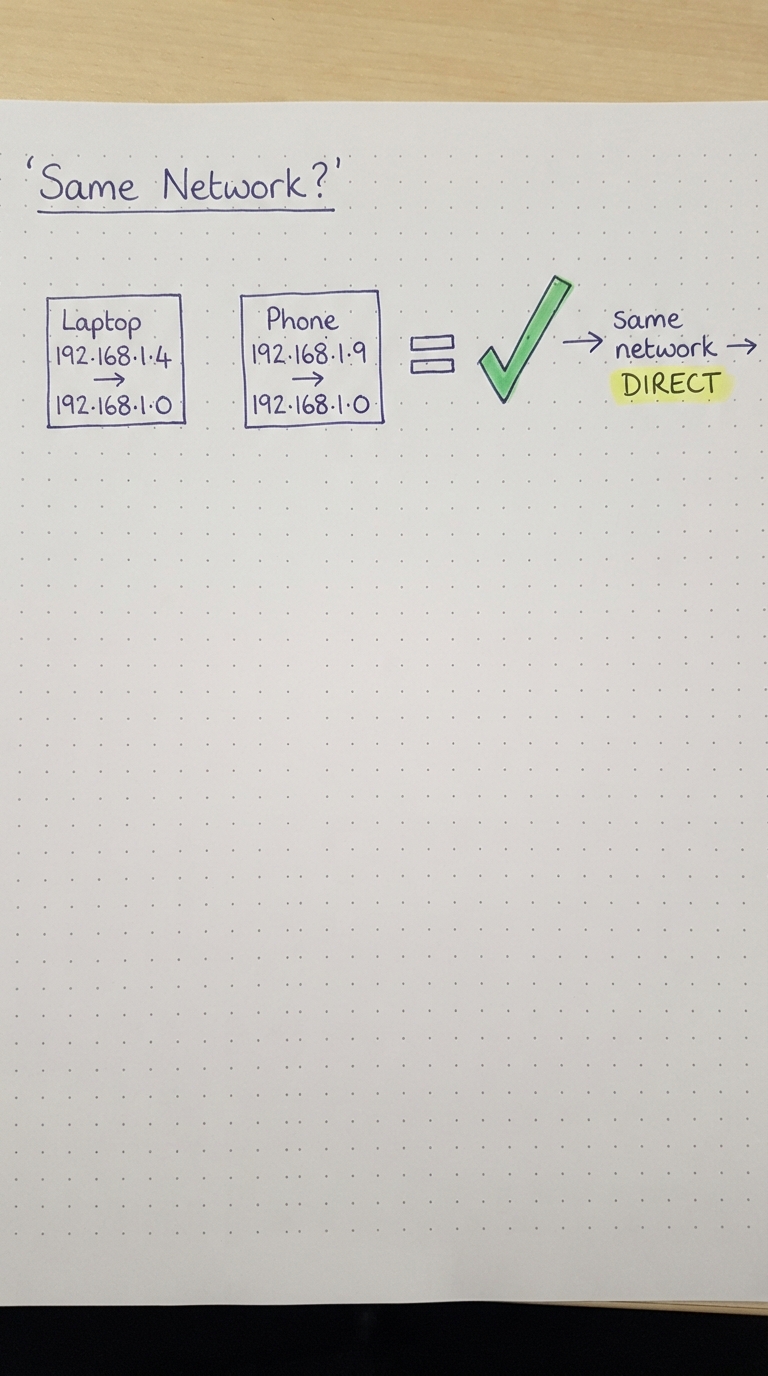 'Same Network?'
Laptop
192.168.1.4
→
192.168.1.0
Phone
192.168.1.9
→
192.168.1.0
=
→
same
network →
DIRECT